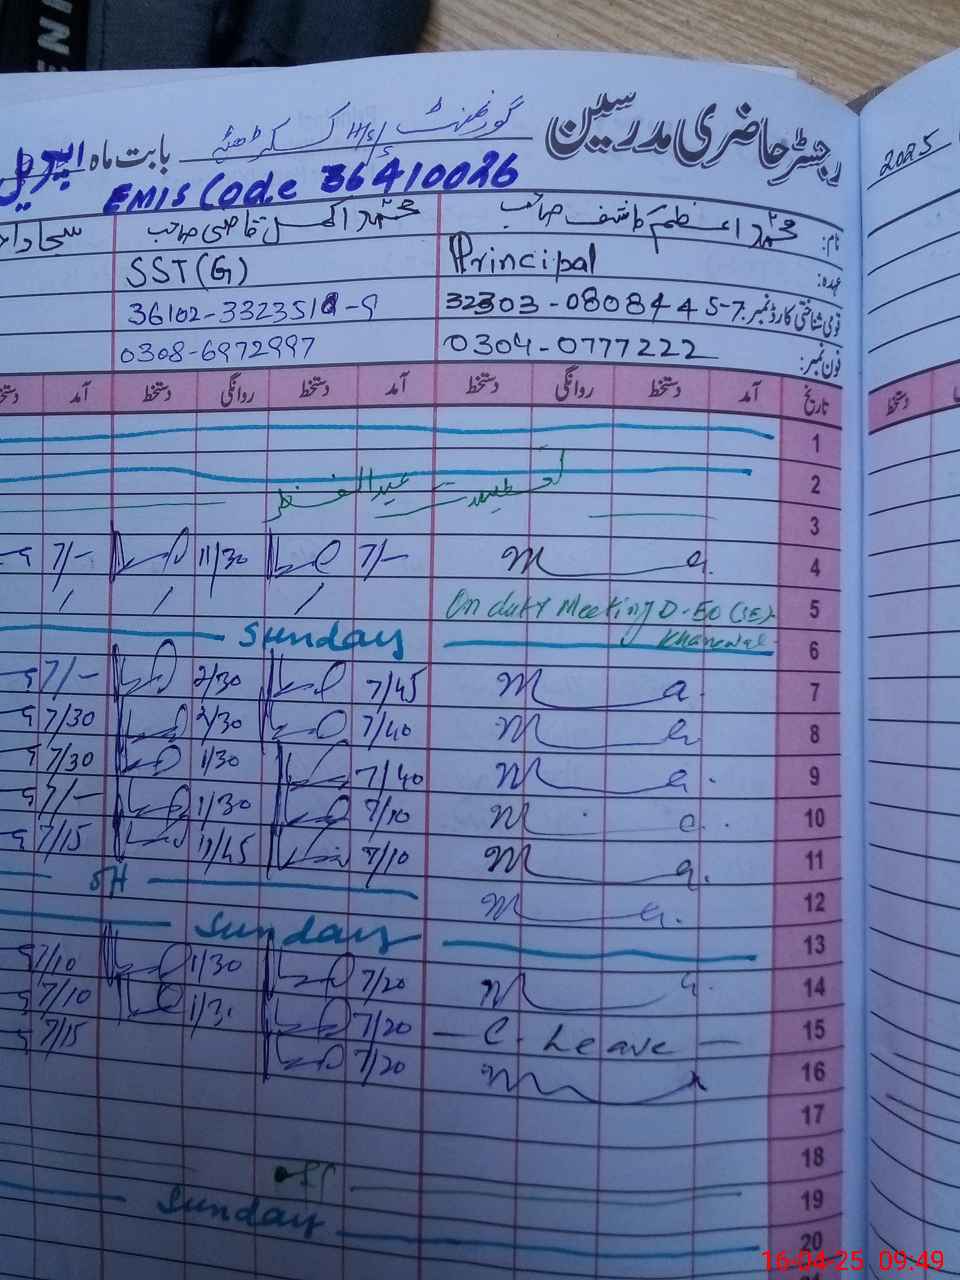 رجسٹر حاضری مدرسین گورنمنٹ H/S ککڑھٹہ بابت ماہ اپریل 2025
EMIS Code 36410026
نام: محمد اعظم کاشف صاحب محمد اکمل قاضی صاحب سجاد
عہدہ: Principal SST(G)
قومی شناختی کارڈ نمبر: 32303-0808445-7
فون نمبر: 0304-0777222 0308-6972997
تاریخ آمد دستخط روانگی دستخط آمد دستخط روانگی دستخط آمد دستخط
1
2
تعطیلات عیدالفطر
3
4 7/- 11/30 7/-
5 On duty Meeting D-EO (SE) Khanewal
6 Sunday
7 7/45 2/30 7/-
8 7/40 2/30 7/30
9 7/40 1/30 7/30
10 7/10 1/30 7/-
11 7/10 11/45 7/15
12
13 Sunday
14 7/20 1/30 7/10
15 C. Leave 7/20 1/3. 7/10
16 7/20 7/15
17
18
19 off
20 Sunday
16-04-25 09:49